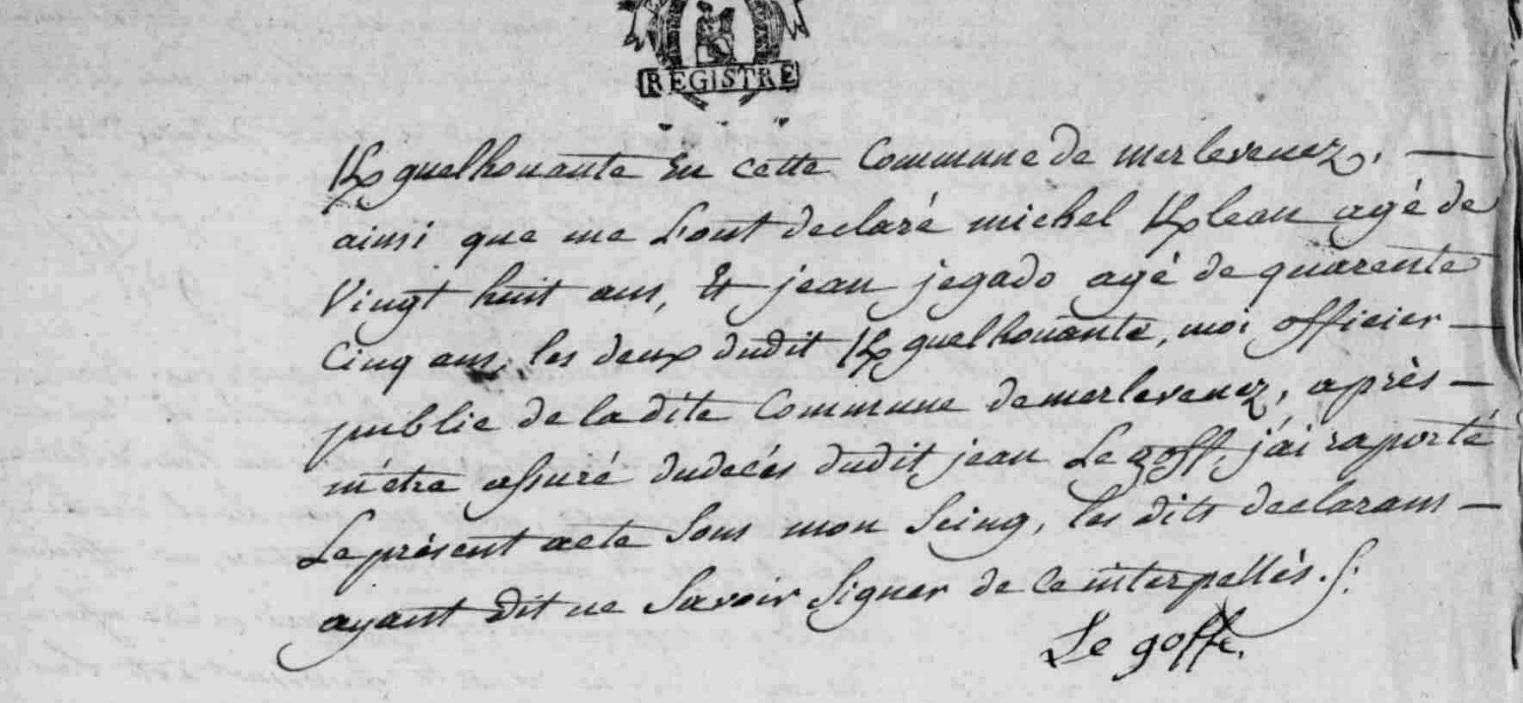 REGISTRE
K/guelhouante en cette Commune de merlevenez, —
ainsi que me L'ont declaré michel K/lean agé de
Vingt huit ans, & jean jegado agé de quarente
Cinq ans, les deux dudit K/guelhouante, moi officier —
public de la dite Commune de merlevenez, après —
m'étre assuré du decés dudit jean Le goff, j'ai raporté
Le présent acte Sous mon Seing, les dits declarans —
ayant dit ne Savoir Signer de ce interpellés. /:
Le goff